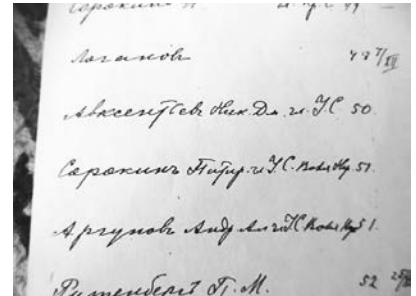 Сорокинъ
Логановъ 48 7/XII
Авксентьевъ Ник. Дм. чл. У.С. 50
Сорокинъ Питир. чл У.С. 51.
Аргуновъ Андр Ал чл УС 51.
Рутенбергъ П. М. 52